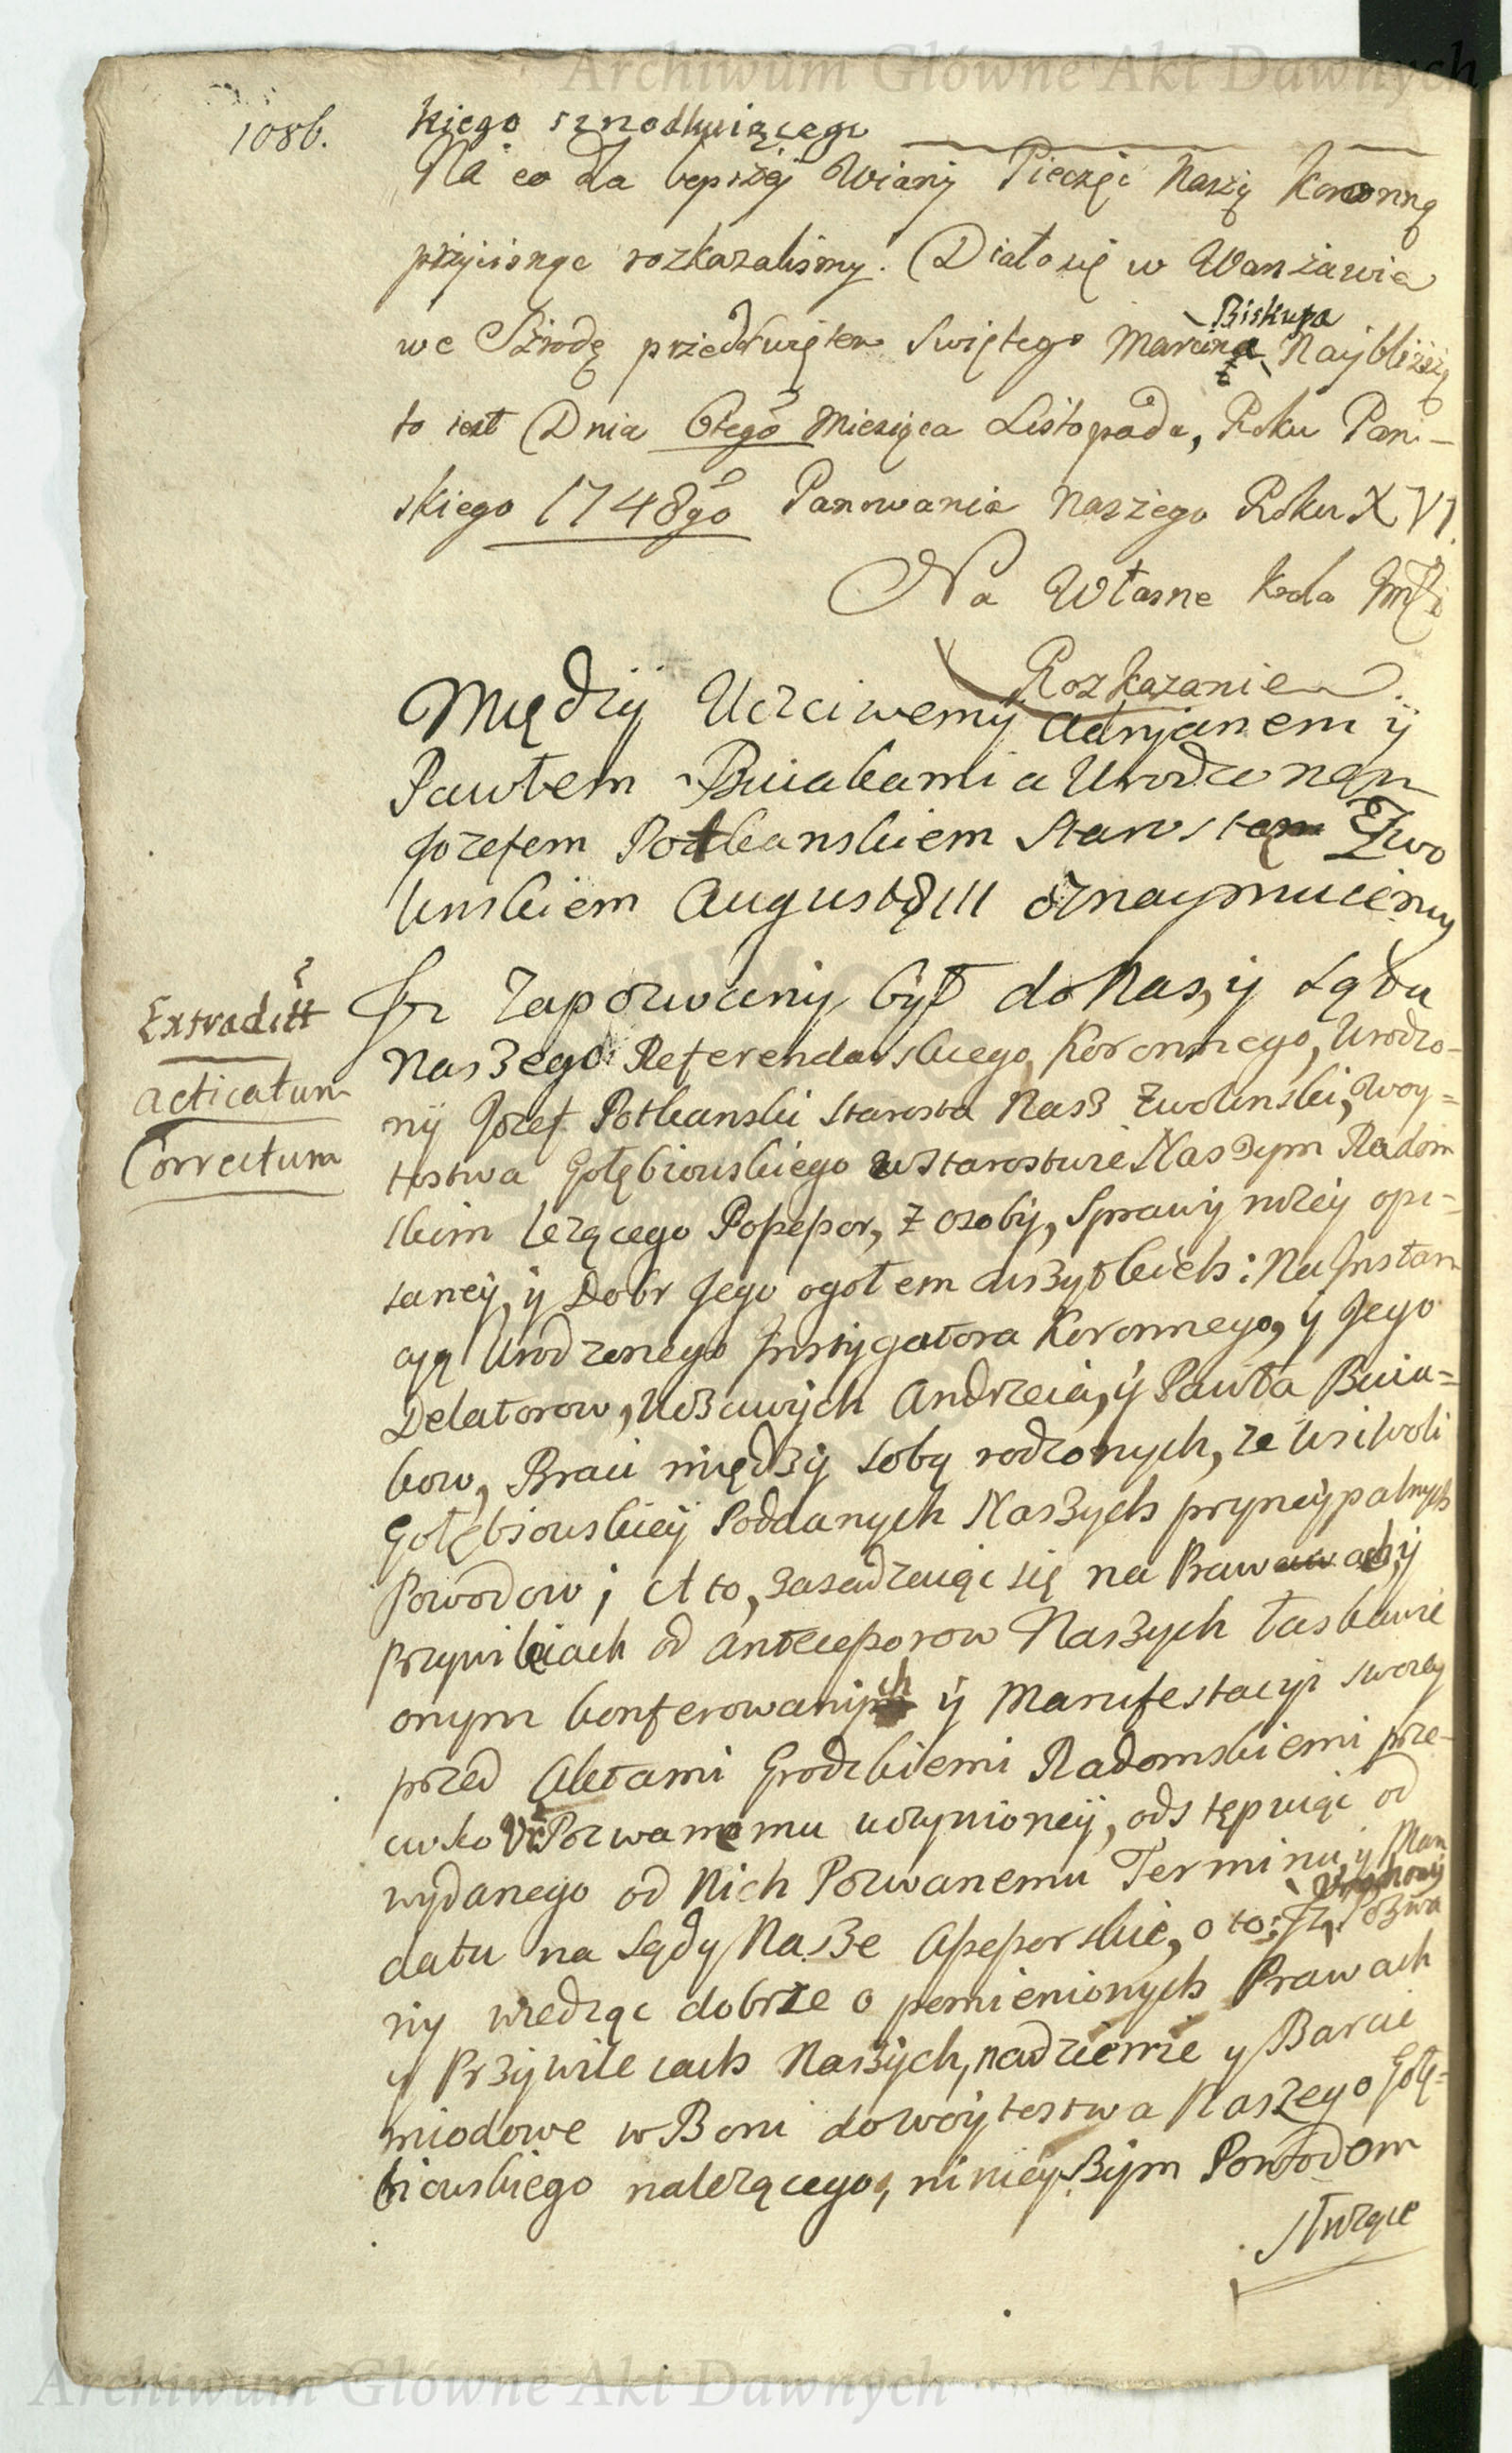 Archiwum Główne Akt Dawnych
1086.
kiego sznodkuiącego
Na co dla lepszey Wiary Pieczęć Naszą Koronną
przycisnąc rozkazalismy. Działo się w Warszawie
we Szrodę przed Swiętem Swiętego Marcina Biskupa Nayblizszą
to iest Dnia 6tego Miesiąca Listopada, Roku Pan-
skiego 1748go Panowania Naszego Roku XVI.
Na Własne Krola JMCi
Rozkazanie.
Między Uczciwemy Adryanem ÿ
Pawłem Buiakami a Urodzonem
Jozefem Potkanskiem Starostem Zwo
linskiem August III oznaymuiemy
Extraditt
Iz Zapozwany był do Nas, y Sądu
Naszego Referendarskiego Koronnego, Urodzo-
acticatum
ny Jozef Potkanski Starosta Nasz Zwolinski, Woy=
Correctum
tostwa Gołębiowskiego w Starostwie Naszym Radom
skim lezącego Possessor, z osoby, Sprawy nizey opi-
saney, y Dobr Jego ogołem wszystkich: Na Instan
cyą Urodzonego Instygatora Koronnego, y Jego
Delatorow, Uczciwych Andrzeia, y Pawła Buia=
kow, Braci między sobą rodzonych, ze Wsi Woli
Gołębiowskiey Poddanych Naszych pryncypalnych
Powodow; A to, zasadzaiąc się na Prawach, y
Przywileiach od Antecessorow Naszych łaskawie
onym konferowanych y Manifestacyi swoiey
przed Aktami Grodzkiemi Radomskiemi prze-
ciwko Pozwanemu uczynioney, odstępuiąc od
wydanego od Nich Pozwanemu Terminu, y Man
datu na Sądy Nasze Assessorskie, o to: Iz Pozwa
ny wiedząc dobrze o pomienionych Prawach
y Przywileiach Naszych, na dziernie y Barcie
miodowe w Boru do Woytostwa Naszego Gołę=
biowskiego nalezącego, ninieyszym Powodom
słuzące
Archiwum Główne Akt Dawnych